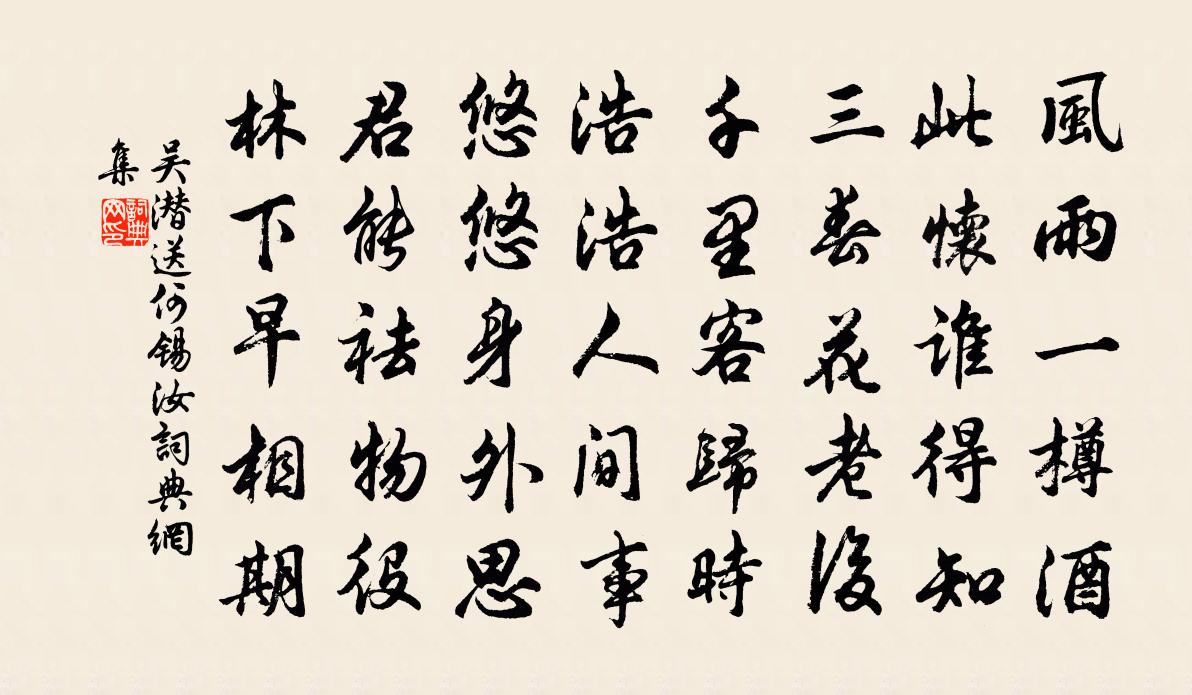 風雨一樽酒
此懷誰得知
三春花老後
千里客歸時
浩浩人間事
悠悠身外思
君能祛物役
林下早相期
吴潜送何錫汝詞典網
集
詞典
网印